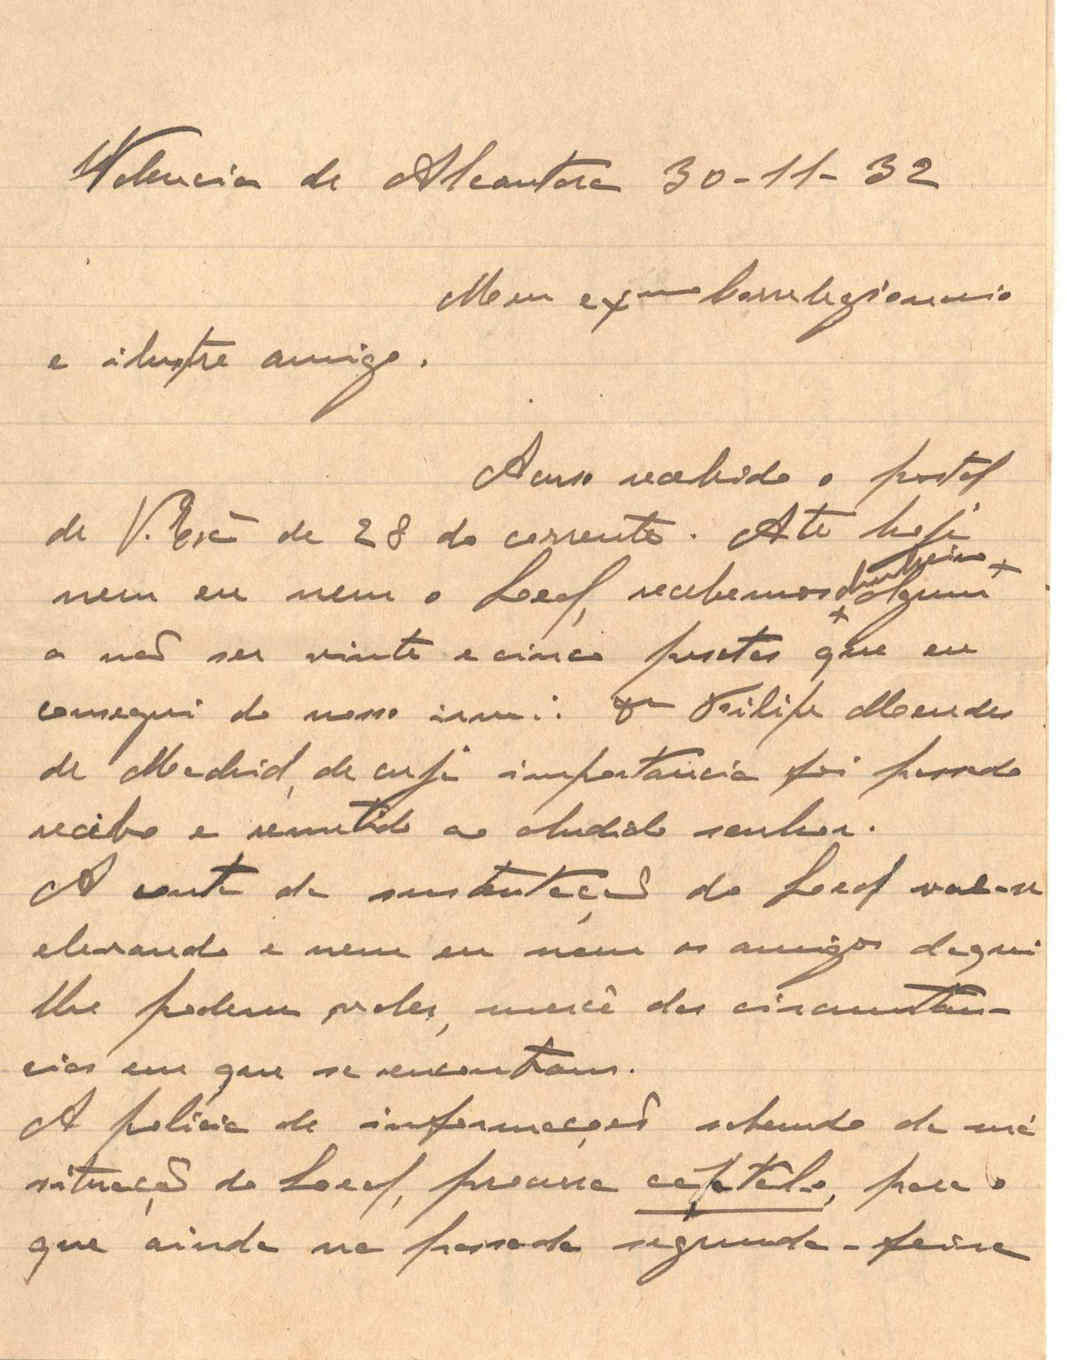 Valencia de Alcantara 30-11-32
Meu exmo Correlegionario
e ilustre amigo.
Acuso recebido o postal
de V. Excia de 28 do corrente. Até hoje
nem eu nem o Leal, recebemos dinheiro algum
a não ser vinte e cinco pesetas que eu
consegui do nosso irm∴ Filipe Mendes
de Madrid, de cuja importancia foi passado
recibo e remetido ao aludido senhor.
A conta da sustentação do Leal vai-se
elevando e nem eu nem os amigos daqui
lhe podem valer, mercê das circumstan-
cias em que se encontram.
A policia de informações sabendo da má
situação do Leal, procura captalo, para o
que ainda na passada segunda-feira